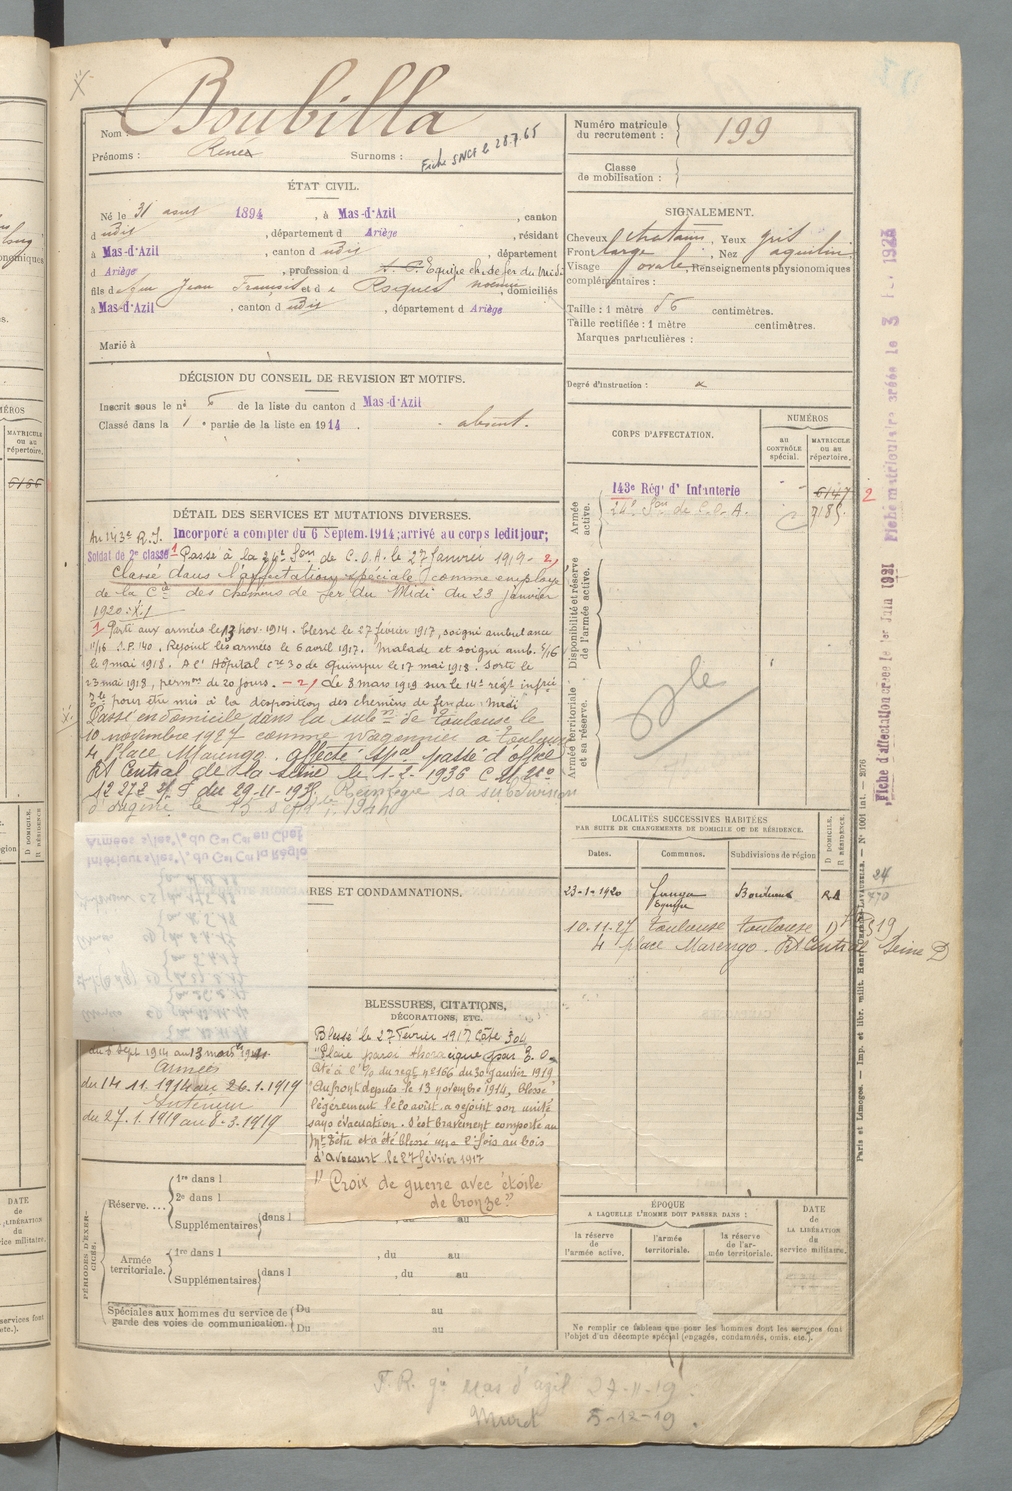 Nom : Boubilla
Prénoms : René Surnoms :
Fiche SNCF le 28.7.65
Numéro matricule du recrutement : 199
Classe de mobilisation :
ÉTAT CIVIL.
Né le 31 aout 1894, à Mas-d'Azil, canton
d udit, département d Ariège, résidant
à Mas-d'Azil, canton d udit, département
d Ariège, profession d Equipe ch. de fer du Midi
fils d Jean François et d e Roques Noémie, domiciliés
à Mas-d'Azil, canton d udit, département d Ariège
Marié à
SIGNALEMENT.
Cheveux chatains, Yeux gris
Front large, Nez aquilin
Visage ovale, Renseignements physionomiques
complémentaires :
Taille : 1 mètre 56 centimètres.
Taille rectifiée : 1 mètre centimètres.
Marques particulières :
Degré d'instruction :
DÉCISION DU CONSEIL DE REVISION ET MOTIFS.
Inscrit sous le n° 5 de la liste du canton d Mas-d'Azil
Classé dans la 1e partie de la liste en 1914. absent.
CORPS D'AFFECTATION.
NUMÉROS
AU CONTRÔLE spécial.
MATRICULE ou au répertoire.
Armée active.
143e Régt d'Infanterie 6147 2
24e Son de C.O.A. 7185
Disponibilité et réserve de l'armée active.
Armée territoriale et sa réserve.
DÉTAIL DES SERVICES ET MUTATIONS DIVERSES.
Au 143e R.I. Incorporé à compter du 6 Septem. 1914; arrivé au corps ledit jour;
Soldat de 2e classe 1 Passé à la 24e Son de C.O.A. le 27 Janvier 1919 - 2)
Classé dans l'affectation spéciale comme employé
de la Cie des chemins de fer du Midi du 23 janvier
1920
1 Parti aux armées le 13 nov. 1914. Blessé le 27 février 1917, soigné ambulance
1/16 S.P. 140. Rejoint les armées le 6 avril 1917. Malade et soigné amb. 5/16
le 9 mai 1918. A l'Hôpital Cre 30 de Quimper le 17 mai 1918. Sorte le
23 mai 1918, permon de 20 jours. - 2) Le 8 mars 1919 sur le 14e régt infrie
pour être mis à la disposition des chemins de fer du Midi
Passé en domicile dans la subon de Toulouse le
10 novembre 1927 comme wagonnier à Toulouse
4 Place Marengo. affecté spal passé d'office
Rt Central de la Seine le 1-2-1936
du 29-11-1935. Réintègre sa subdivision
d'origine le 15 1940
Armées s/les o/ du Gal Ct en Chef
Intérieur s/les o/ du Gal Ct la Région
RES ET CONDAMNATIONS.
BLESSURES, CITATIONS, DÉCORATIONS, ETC.
Blessé le 27 Février 1917 Côte 304
"Plaie paroi thoracique par E.O.
Cité à l'O/ du régt n° 166 du 30 Janvier 1919
"Au front depuis le 13 novembre 1914, blessé
légèrement le 20 août a rejoint son unité
sans évacuation. S'est bravement comporté au
Mt Têtu et a été blessé une 2e fois au bois
d'Avocourt le 27 février 1917
"Croix de guerre avec étoile
de bronze"
Armées
du 14 11. 1914 au 26.1.1919
Intérieur
du 27.1.1919 au 8-3.1919
LOCALITÉS SUCCESSIVES HABITÉES
PAR SUITE DE CHANGEMENTS DE DOMICILE OU DE RÉSIDENCE.
Dates. Communes. Subdivisions de région D DOMICILE. R RÉSIDENCE.
23-1-1920 Bordeaux
10.11.27 Toulouse Toulouse D
4 place Marengo. Rt Central Seine D
PÉRIODES D'EXERCICES.
Réserve.... 1re dans l
2e dans l
Supplémentaires dans l au
Armée territoriale. 1re dans l, du au
Supplémentaires dans l, du au
Spéciales aux hommes du service de garde des voies de communication. Du au
Du au
ÉPOQUE
A LAQUELLE L'HOMME DOIT PASSER DANS :
la réserve de l'armée active.
l'armée territoriale.
la réserve de l'armée territoriale.
DATE de LA LIBÉRATION du service militaire.
Ne remplir ce tableau que pour les hommes dont les services font
l'objet d'un décompte spécial (engagés, condamnés, omis, etc.).
Paris et Limoges. — Imp. et libr. milit. Henri Charles-Lavauzelle. — N° 1001 int. — 2976
Fiche d'affectation créée le 1er Juin 1921
Fiche matriculaire créée le 3 1923
Mas d'Azil 27-11-19.
Muret 5-12-19.